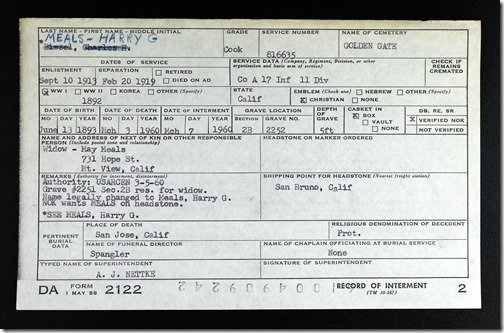 LAST NAME - FIRST NAME - MIDDLE INITIAL GRADE SERVICE NUMBER NAME OF CEMETERY
MEALS- HARRY G
Cook 816635 GOLDEN GATE
DATES OF SERVICE SERVICE DATA (Company, Regiment, Division, or other organization and basic arm of service) CHECK IF REMAINS CREMATED
ENLISTMENT SEPARATION RETIRED
DIED ON AD
Sept 10 1913 Feb 20 1919 Co A 17 Inf 11 Div
WW I WW II KOREA OTHER (Specify) STATE EMBLEM (Check one) HEBREW OTHER (Specify)
1892 Calif X CHRISTIAN NONE
DATE OF BIRTH DATE OF DEATH DATE OF INTERMENT GRAVE LOCATION DEPTH OF GRAVE CASKET IN DB, RE, SR
MO DAY YEAR MO DAY YEAR MO DAY YEAR SECTION GRAVE NO. X BOX X VERIFIED NOK
June 13 1893 Mch 3 1960 Mch 7 1960 2B 2252 5ft VAULT
NONE
NAME AND ADDRESS OF NEXT OF KIN OR OTHER RESPONSIBLE PERSON (Include postal zone and relationship) HEADSTONE OR MARKER ORDERED NOT MARKER ORDERED
Widow - May Meals
731 Hope St.
Mt. View, Calif
REMARKS (Authority for interment, disinterment) SHIPPING POINT FOR HEADSTONE (Nearest freight station)
Authority: USARCEN 3-5-60
Grave #2251 Sec.2B res. for widow.
Name legally changed to Meals, Harry G.
NOK wants MEALS on headstone.
San Bruno, Calif
*SEE MEALS, Harry G.
PERTINENT BURIAL DATA PLACE OF DEATH RELIGIOUS DENOMINATION OF DECEDENT
San Jose, Calif Prot.
NAME OF FUNERAL DIRECTOR NAME OF CHAPLAIN OFFICIATING AT BURIAL SERVICE
Spangler None
TYPED NAME OF SUPERINTENDENT SIGNATURE OF SUPERINTENDENT
A. J. NETTKE
DA FORM 1 MAY 58 2122 RECORD OF INTERMENT (TM 10-287) 2